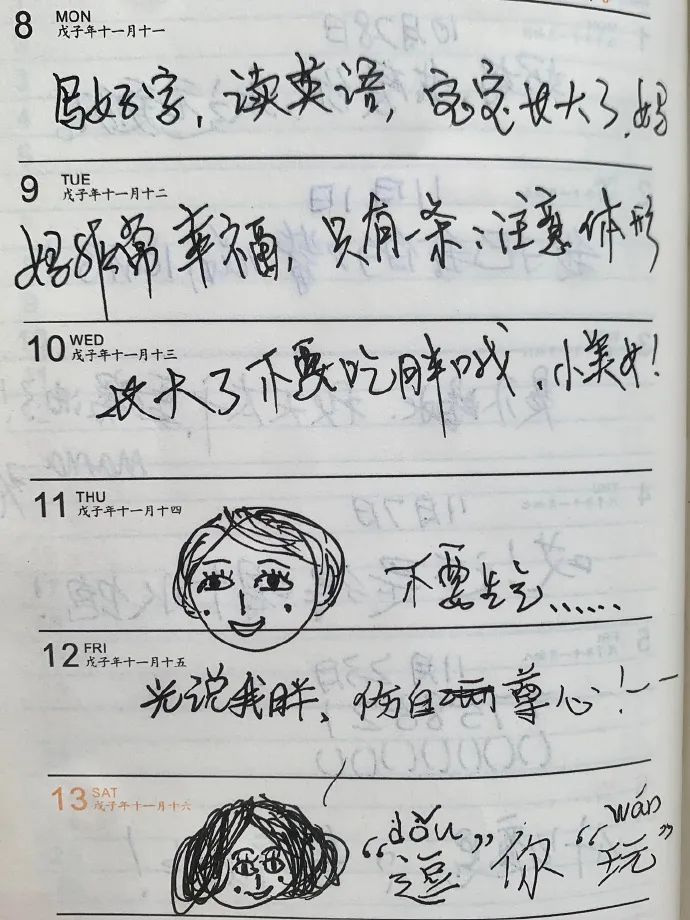 8 MON
戊子年十一月十一
写好字,读英语,宝宝长大了,妈
9 TUE
戊子年十一月十二
妈非常幸福,只有一条:注意体形
10 WED
戊子年十一月十三
长大了不要吃胖哦,小美女!
11 THU
戊子年十一月十四
不要生气……
12 FRI
戊子年十一月十五
光说我胖、伤自尊心!——
13 SAT
戊子年十一月十六
dǒu wán
“逗”你“玩”